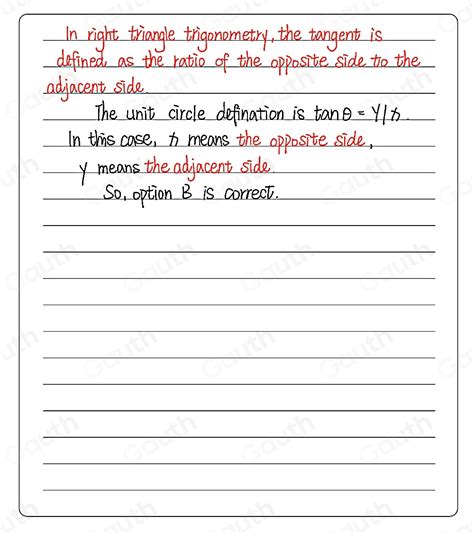 In right triangle trigonometry, the tangent is
defined as the ratio of the opposite side to the
adjacent side.
The unit circle defination is tanθ = Y/x.
In this case, x means the opposite side,
y means the adjacent side.
So, option B is correct.
Gauth